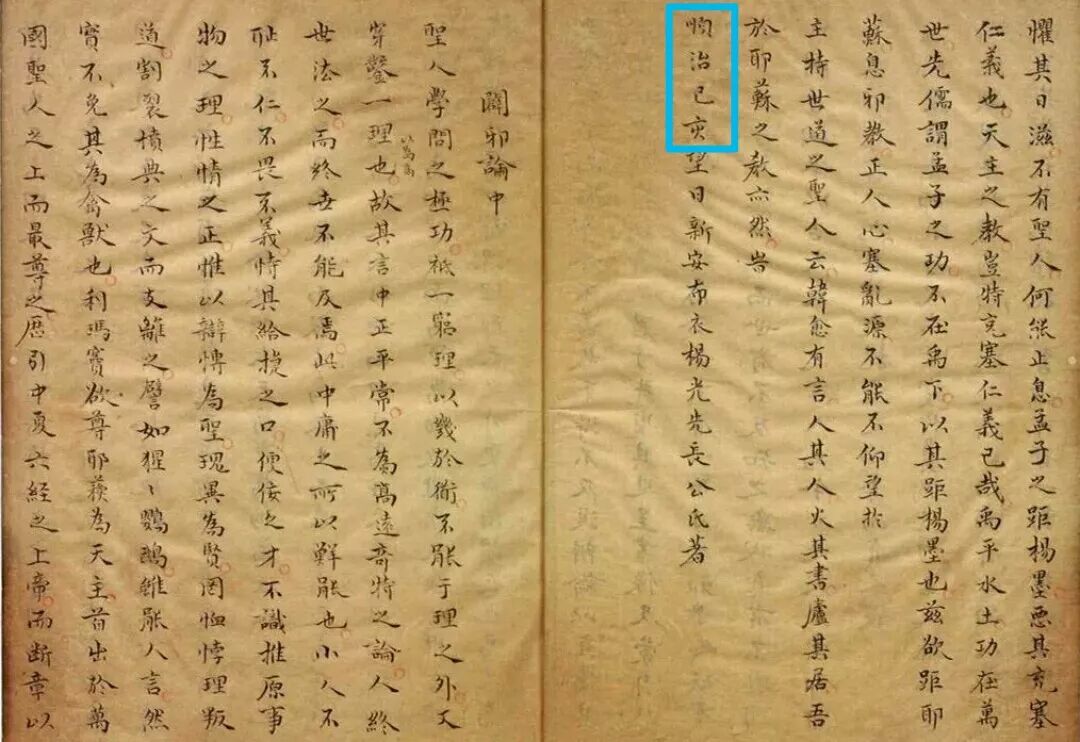 懼其日滋不有聖人何能止息孟子之距楊墨惡其充塞
仁義也天主之教豈特充塞仁義已哉禹平水土功在萬
世先儒謂孟子之功不在禹下以其距楊墨也兹欲距耶
蘇息邪教正人心塞亂源不能不仰望於
主持世道之聖人云韓愈有言人其人火其書廬其居吾
於耶蘇之教亦然旹
順治己亥望日新安布衣楊光先長公氏著
闢邪論中
聖人學問之極功祗一窮理以幾於衜不能于理之外又
穿鑿一理以為高也故其言中正平常不為高遠奇特之論人終
世法之而終世不能及焉此中庸之所以鮮能也小人不
耻不仁不畏不義恃其給捷之口便佞之才不識推原事
物之理性情之正惟以辯博為聖瑰異為賢罔恤悖理叛
道割裂墳典之文而支離之譬如猩〻鸚鵡雖能人言然
實不免其為禽獸也利瑪竇欲尊耶蘇為天主首出於萬
國聖人之上而最尊之歷引中夏六経之上帝而断章以